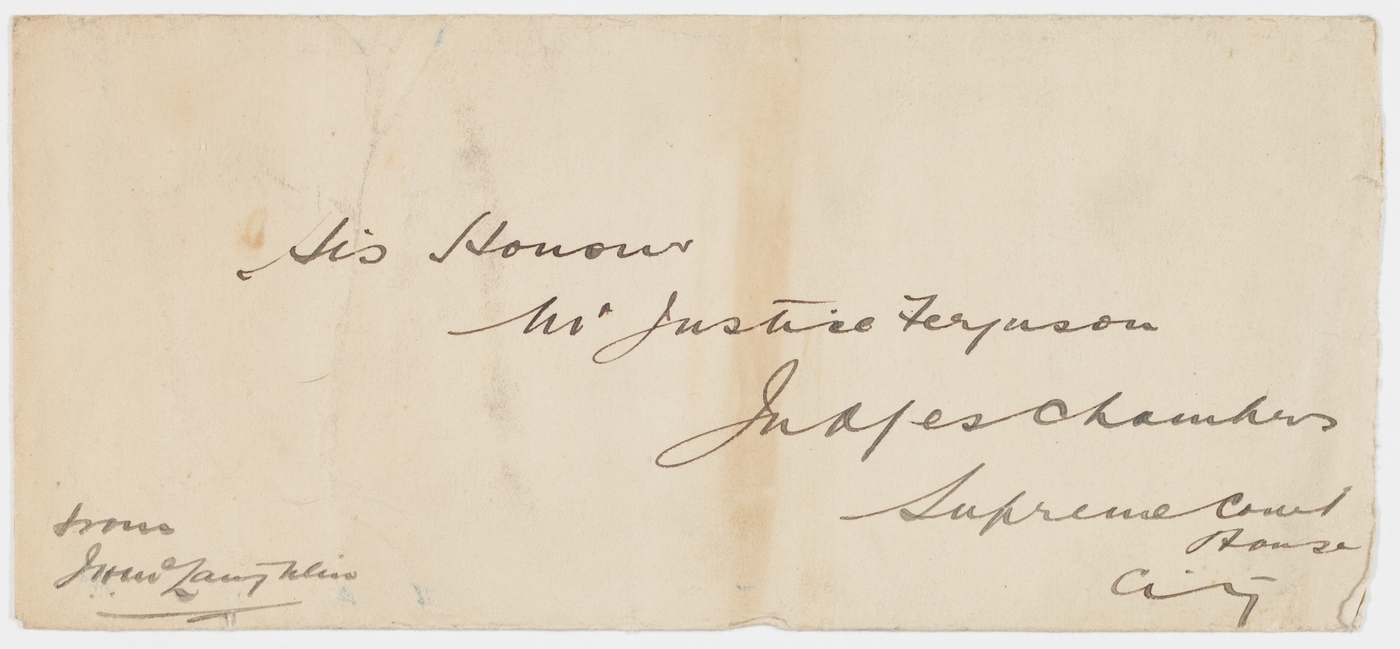 His Honour
Mr Justice Ferguson
Judges Chambers
Supreme Court
House
City
from
McLaughlin